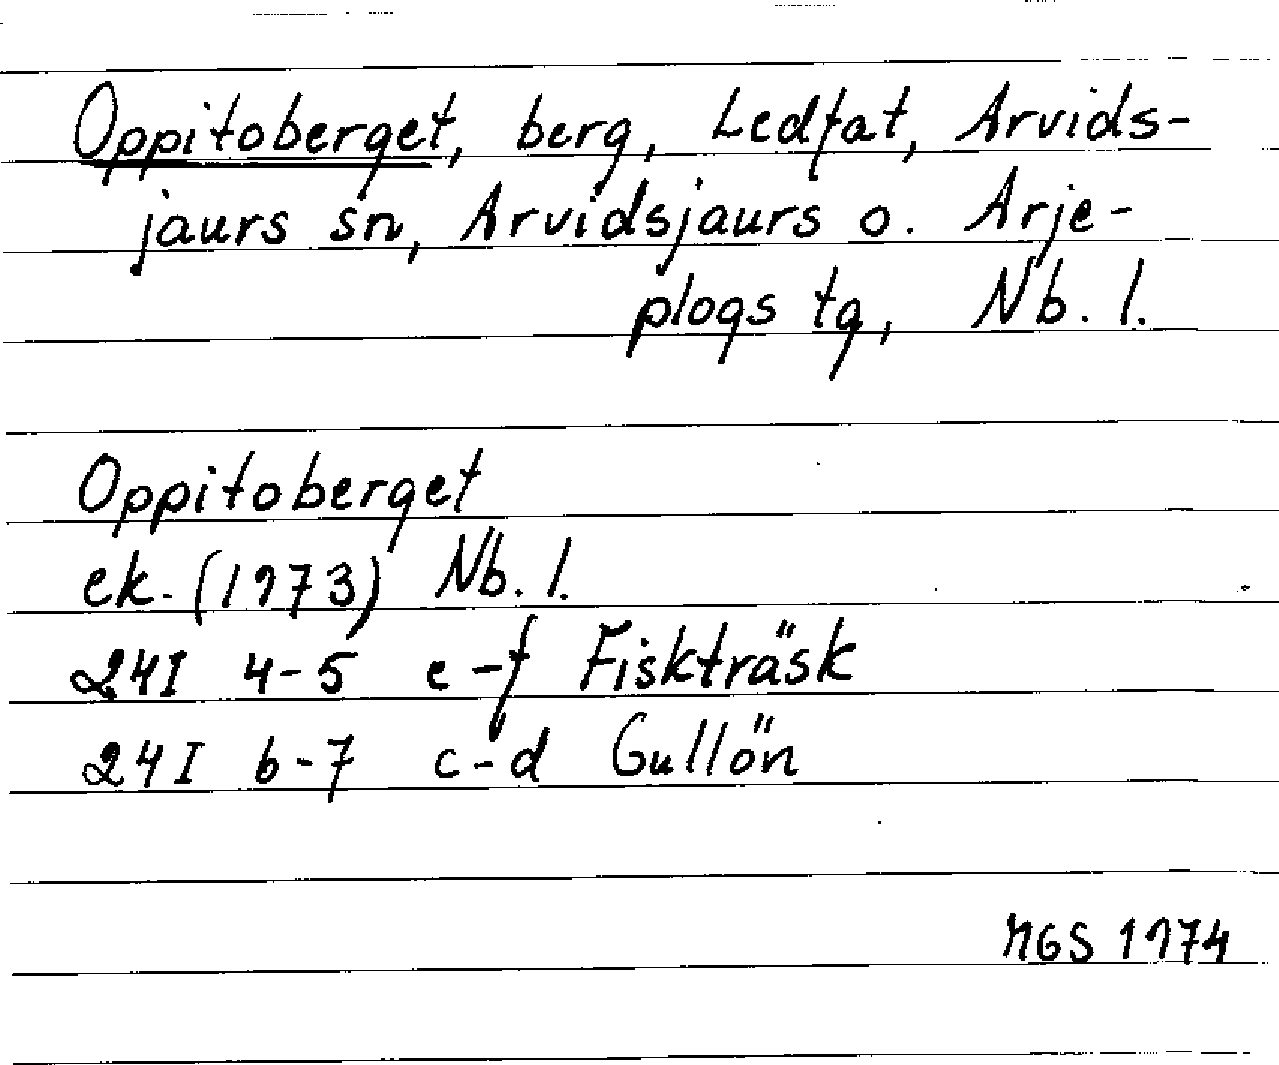 Oppitoberget, berg, Ledfat, Arvids-
jaurs sn, Arvidsjaurs o. Arje-
plogs tg, Nb. l.
Oppitoberget
ek. (1973) Nb. l.
24I 4-5 e-f Fiskträsk
24I 6-7 c-d Gullön
MGS 1974